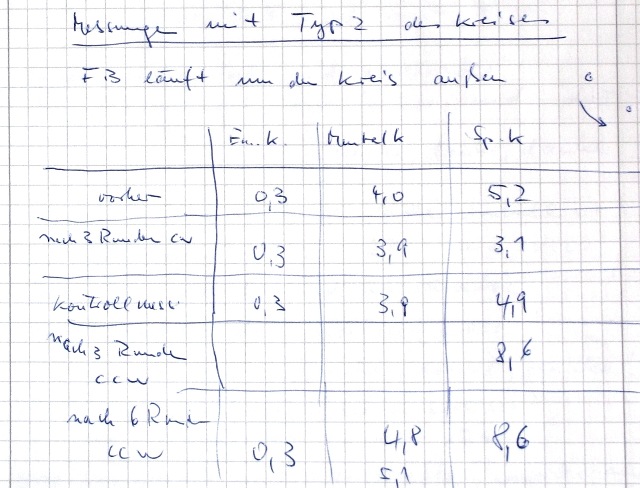 Messungen mit Typ 2 des Kreises
FB läuft um den Kreis außen
Em.K. Mentalk Sp.K
vorher 0,3 4,0 5,2
nach 3 Runden cw 0,3 3,9 3,1
Kontrollmess. 0,3 3,9 4,9
nach 3 Runden 8,6
ccw
nach 6 Runden
ccw 0,3 4,8 8,6
5,1